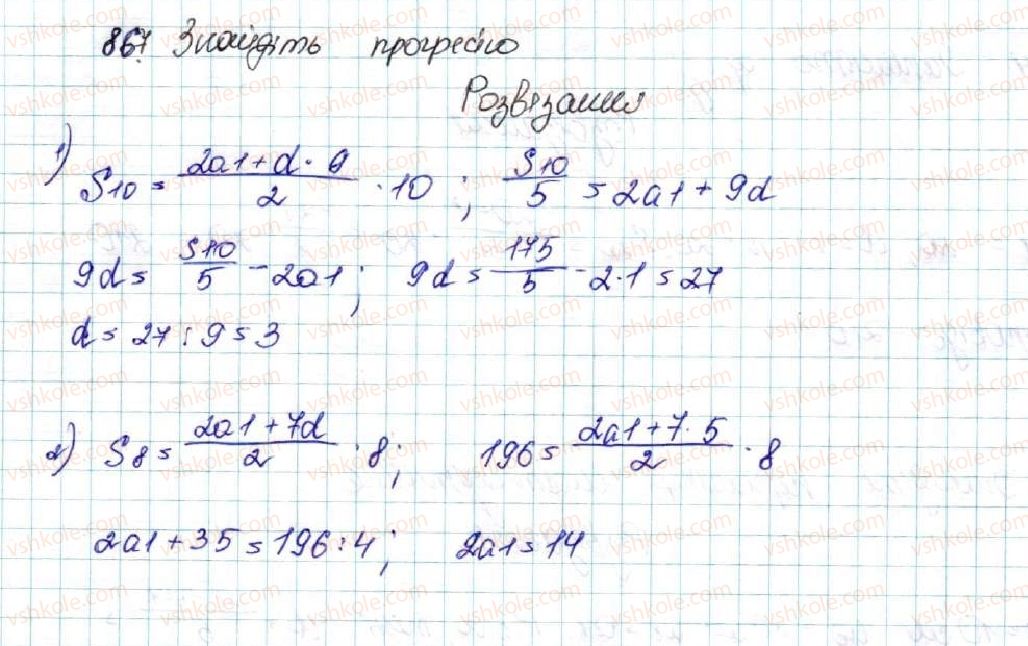 867 Знайдіть прогресію
Розв'язання
1) S10 = (2a1 + d · 9)/2 · 10 ; S10/5 = 2a1 + 9d
9d = S10/5 - 2a1 ; 9d = 145/5 - 2·1 = 27
d = 27 : 9 = 3
2) S8 = (2a1 + 7d)/2 · 8 ; 196 = (2a1 + 7·5)/2 · 8
2a1 + 35 = 196 : 4 ; 2a1 = 14